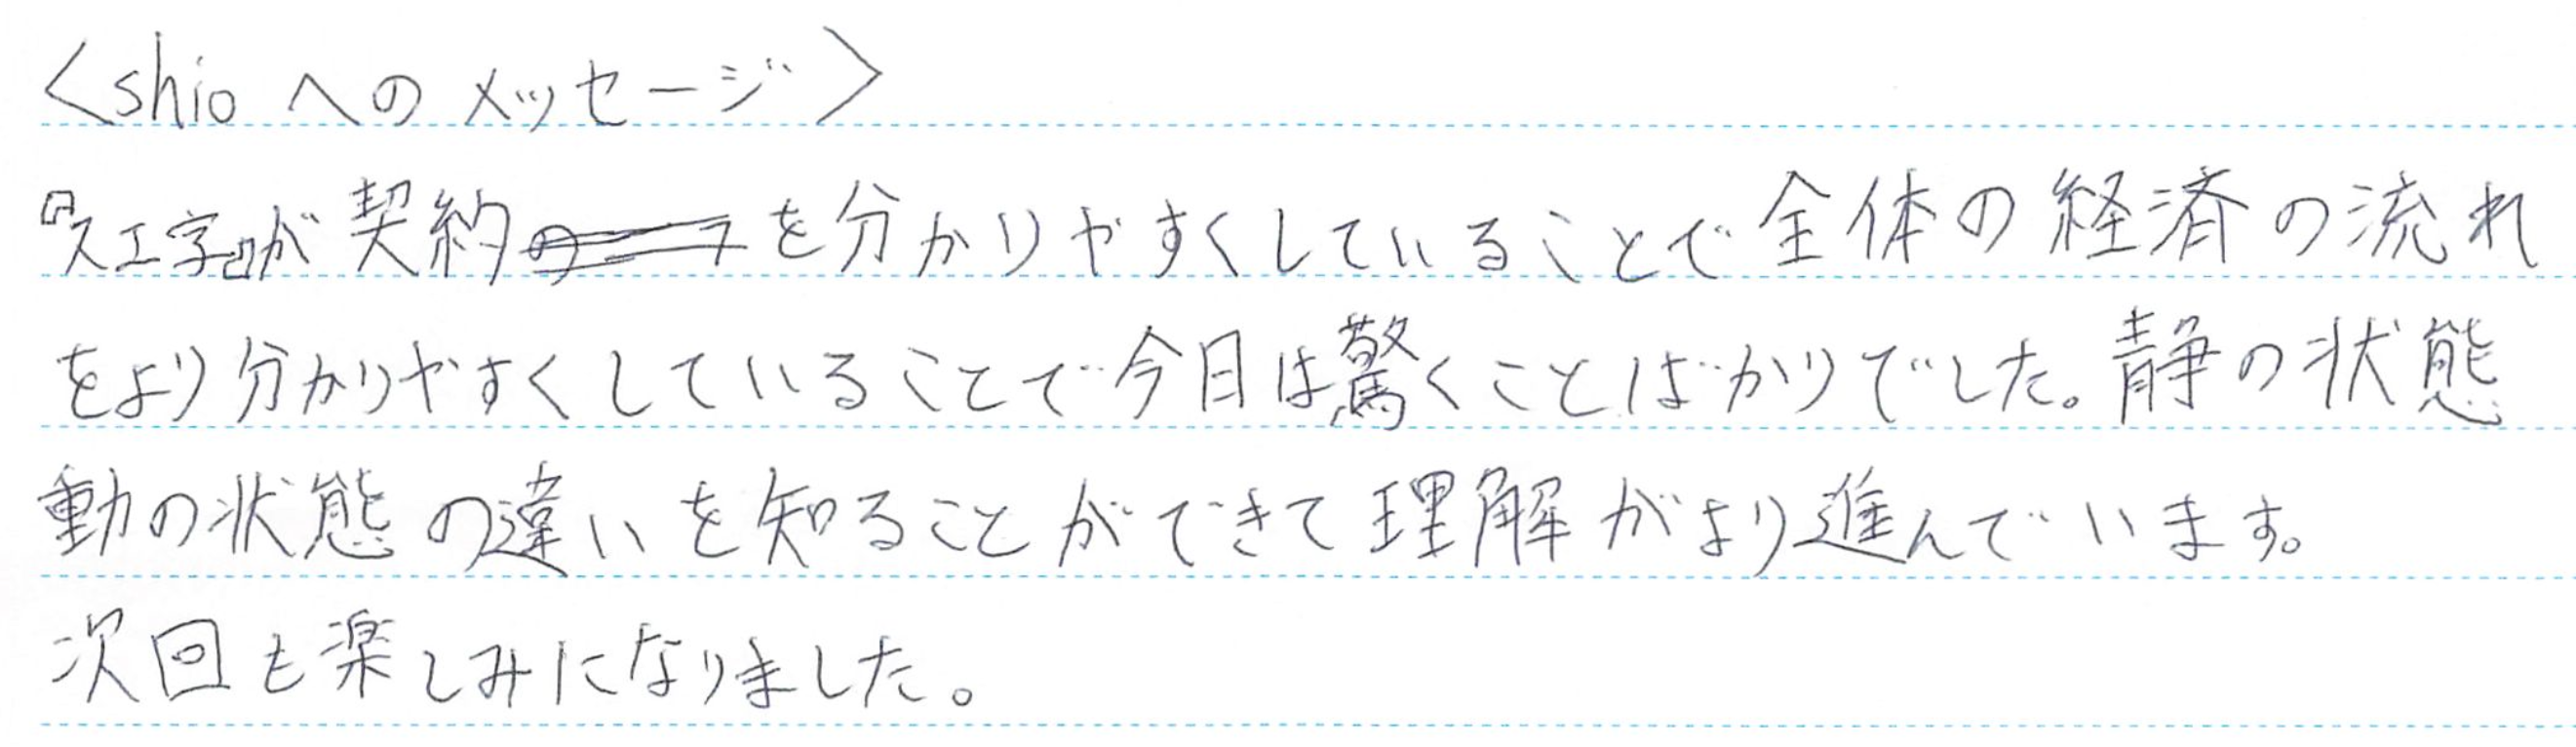 <shioへのメッセージ>
『スエ字』が契約を分かりやすくしていることで全体の経済の流れ
をより分かりやすくしていることで今日は驚くことばかりでした。静の状態
動の状態の違いを知ることができて理解がより進んでいます。
次回も楽しみになりました。